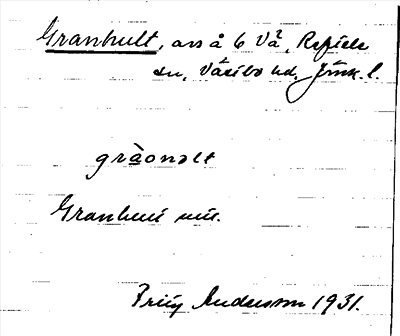 Granhult, avs å 6 Vä, Reftele
sn, Västbo hd, Jönk. l.
gràonəlt
Granhult
Fritz Andersson 1931.